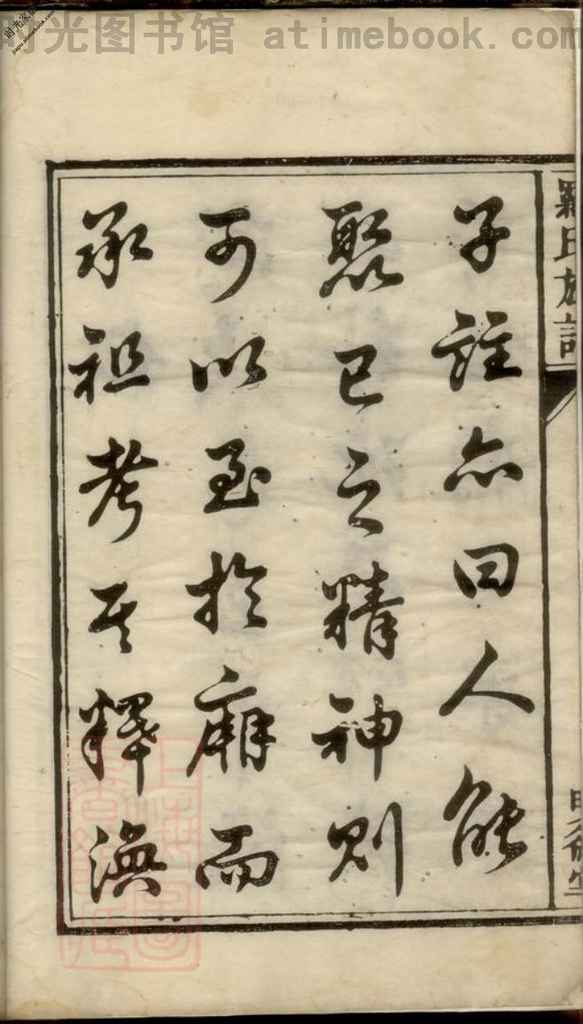 时光图书馆 atimebook.com
羅氏族譜
子註亦曰人能
聚己之精神則
可以至於廟而
承祖考其釋渙